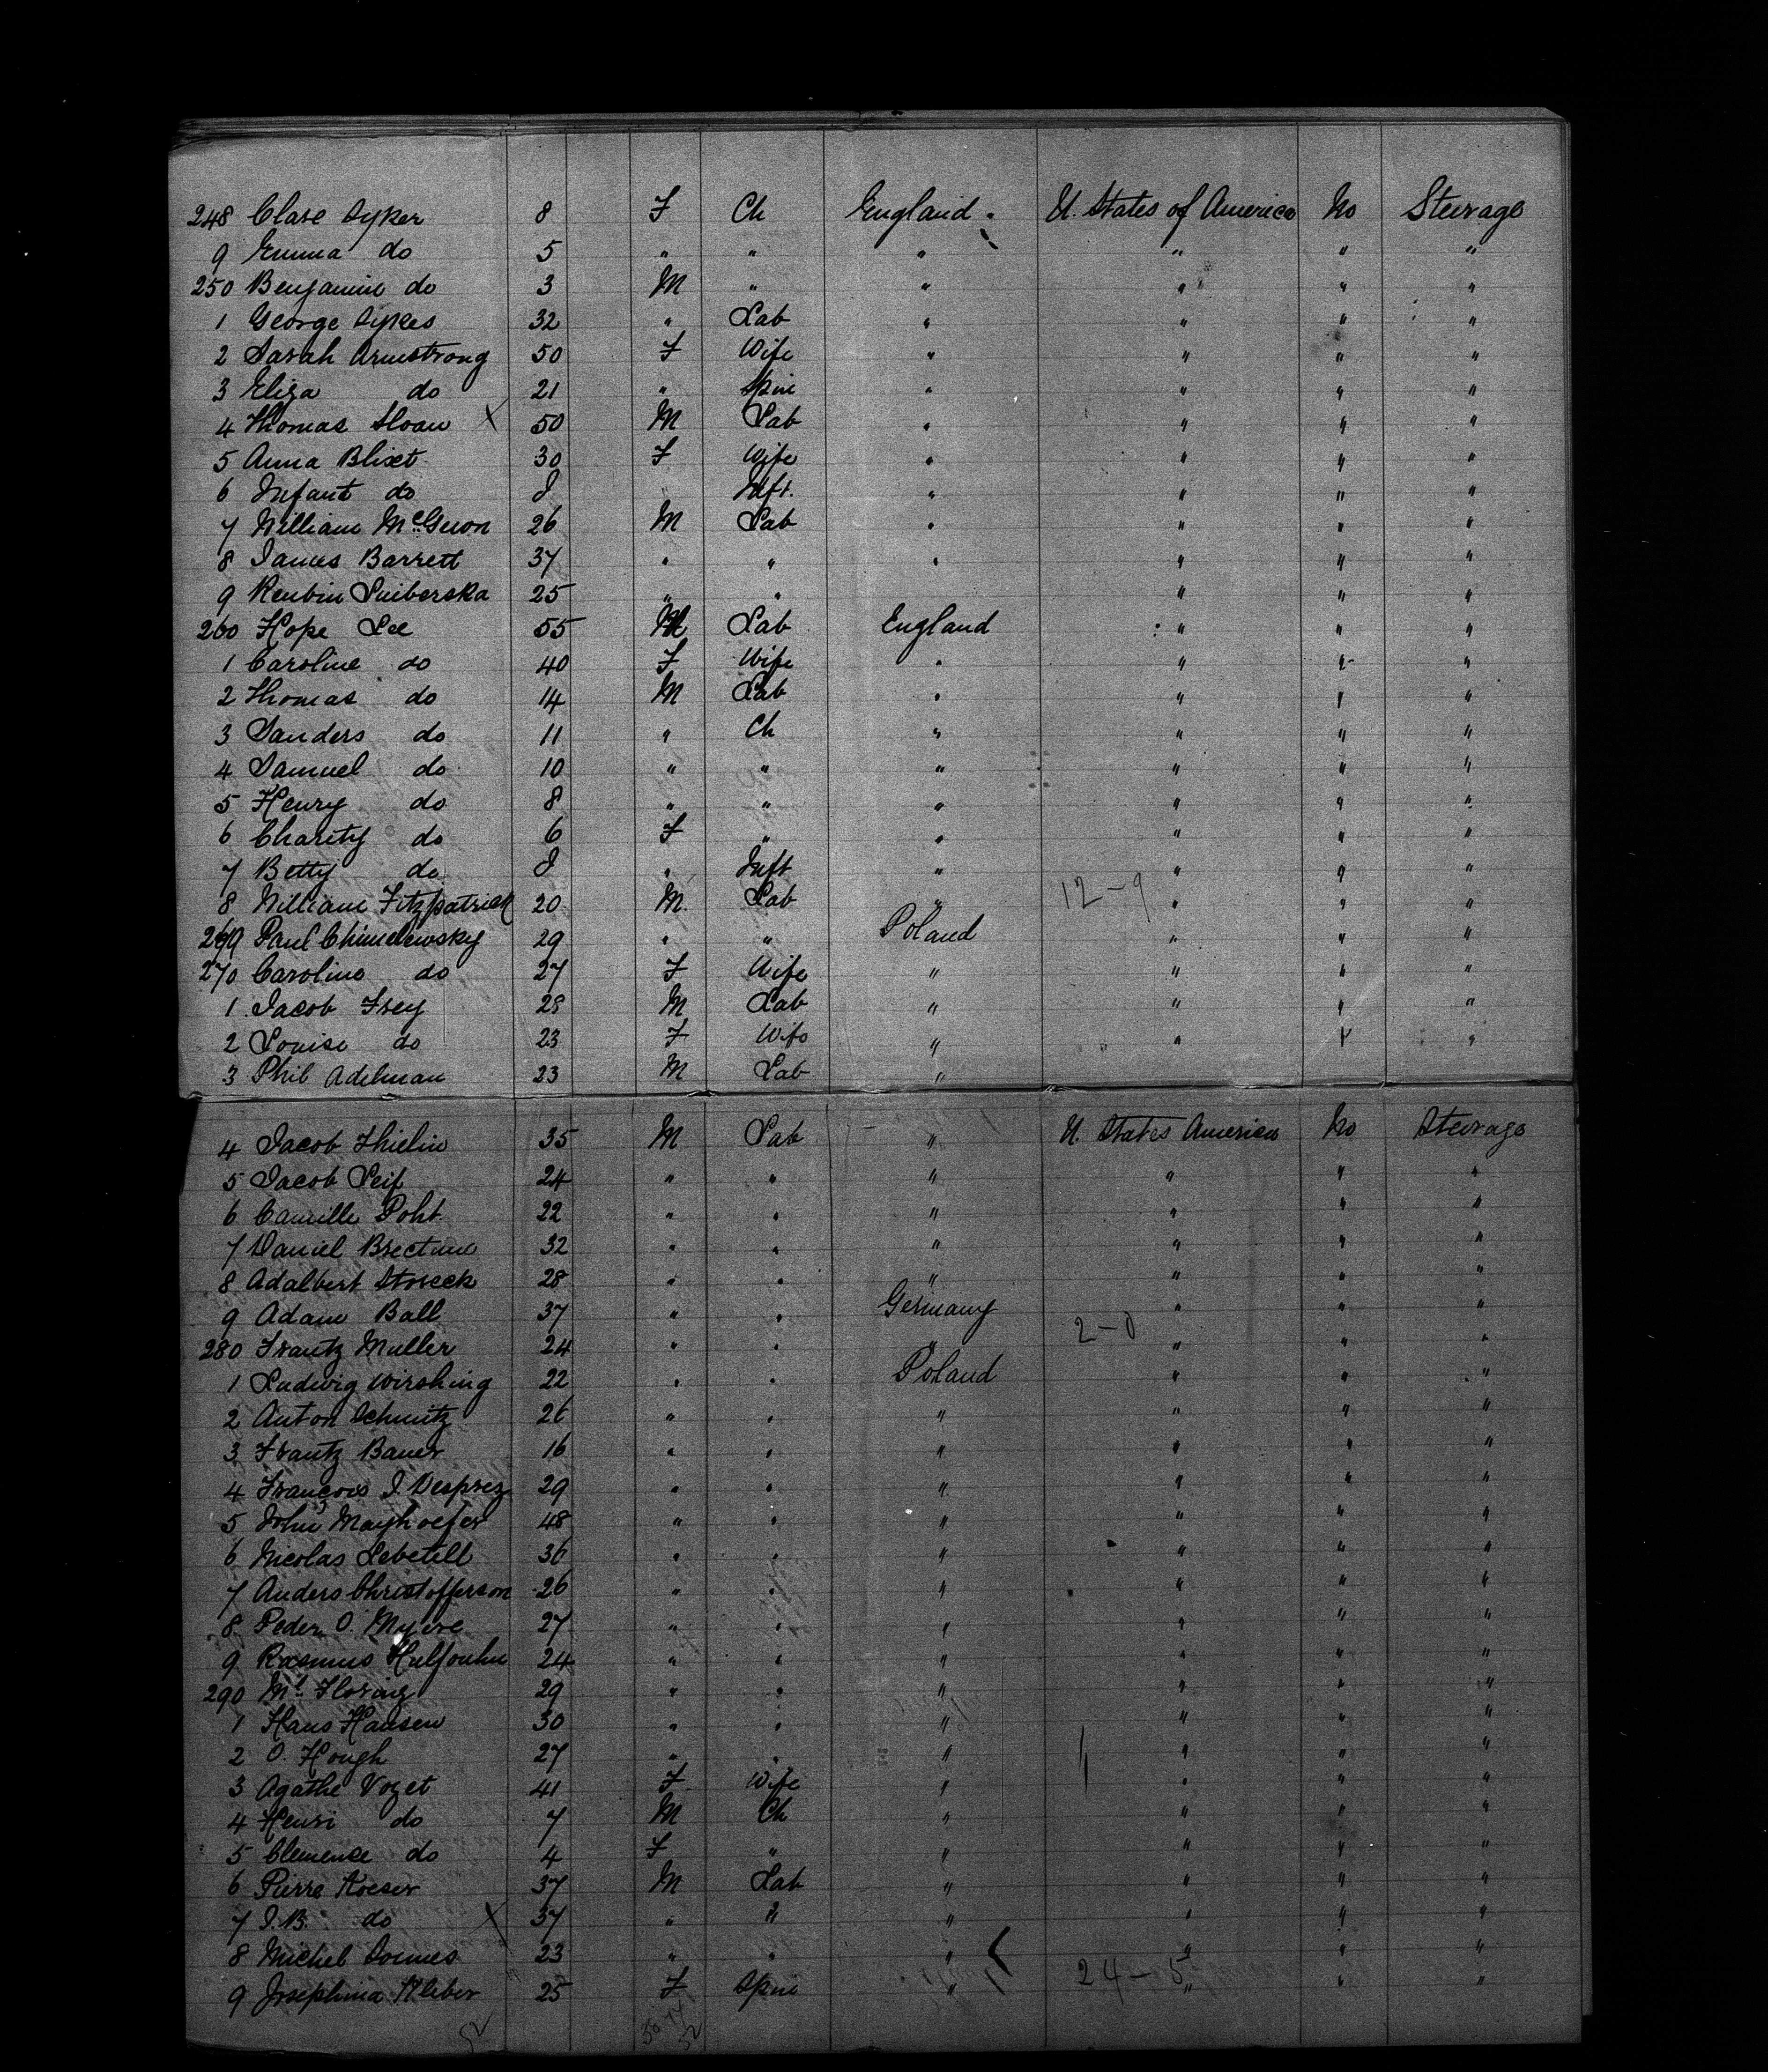 248 Clare Syker 8 F Ch England " U. States of America No Steerage
9 Emma do 5 " " " " " "
250 Benjamin do 3 M " " " " "
1 George Sykes 32 " Lab " " " "
2 Sarah Armstrong 50 F Wife " " " "
3 Eliza do 21 " Spin " " " "
4 Thomas Sloan X 50 M Lab " " " "
5 Anna Blixt 30 F Wife " " " "
6 Infant do " Inft. " " " "
7 William McGuon 26 M Lab " " " "
8 James Barrett 37 " " " " " "
9 Reubin Sniberska 25 " " " " "
260 Hope Lee 55 M Lab England " " "
1 Caroline do 40 F Wife " " " "
2 Thomas do 14 M Lab " " " "
3 Sanders do 11 " Ch " " " "
4 Samuel do 10 " " " " " "
5 Henry do 8 " " " " " "
6 Charity do 6 F " " " " "
7 Betty do " Inft " " " "
8 William Fitzpatrick 20 M Lab " 12-9 " " "
269 Paul Chimelewsky 29 " " Poland " " "
270 Caroline do 27 F Wife " " " "
1 Jacob Frey 28 M Lab " " " "
2 Louise do 23 F Wife " " " "
3 Phil Adelman 23 M Lab "
4 Jacob Thielin 35 M Lab " U. States America No Steerage
5 Jacob Leif 24 " " " " " "
6 Camille Poht 22 " " " " " "
7 Daniel 32 " " " " " "
8 Adalbert 28 " " " " " "
9 Adam Ball 37 " " Germany " " "
280 Frantz Muller 24 " " " 2-0 " " "
1 Ludwig Wirshing 22 " " Poland " " "
2 Anton Schmitz 26 " " " " " "
3 Frantz Bauer 16 " " " " " "
4 Francois J. Desprez 29 " " " " " "
5 John Mayhoefer 48 " " " " " "
6 Nicolas Lebetell 36 " " " " " "
7 Anders Christofferson 26 " " " " " "
8 Peder O. Myere 27 " " " " " "
9 Rasmus 24 " " " " " "
290 29 " " " " " "
1 Hans Hansen 30 " " " " " "
2 O. Hough 27 " " " " " "
3 Agathe Vozet 41 F Wife " " " "
4 Henri do 7 M Ch " " " "
5 Clemence do 4 F " " " " "
6 Pierre Koeser 37 M Lab " " " "
7 J.B. do X 37 " " " " " "
8 Michel 23 " " " " " "
9 Josephina Kleber 25 F Spin " 24-5 " " "
52
52